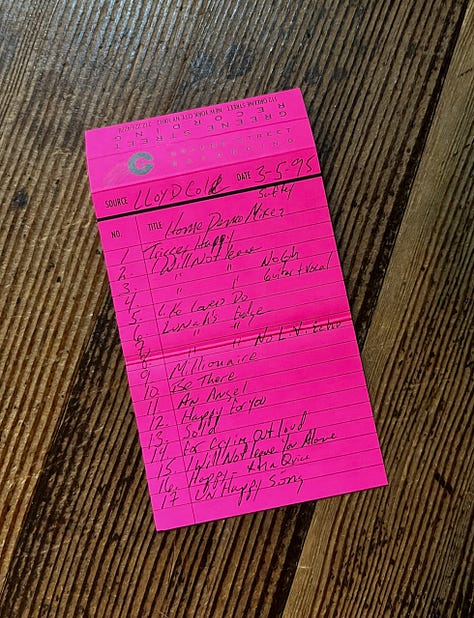 112 GREENE STREET NEW YORK CITY NY 10012
GREENE STREET
RECORDING
GREENE STREET
RECORDING
SOURCE LLOYD COLE DATE 3-5-95
NO. TITLE Home Demo Mixes
1 Trigger Happy
2. I Will Not leave
3. " " No Gtr
4. Guitar + Vocal
5. Like Lovers Do
6 Lunatics Edge
7 " " No L.V. echo
8
9 Millionaire
10 Be There
11 An Angel
12. Happy for you
13. Sold
14 For Cryin Out Loud
15 I Will Not leave You Alone
16. Happy
17 UN Happy Song